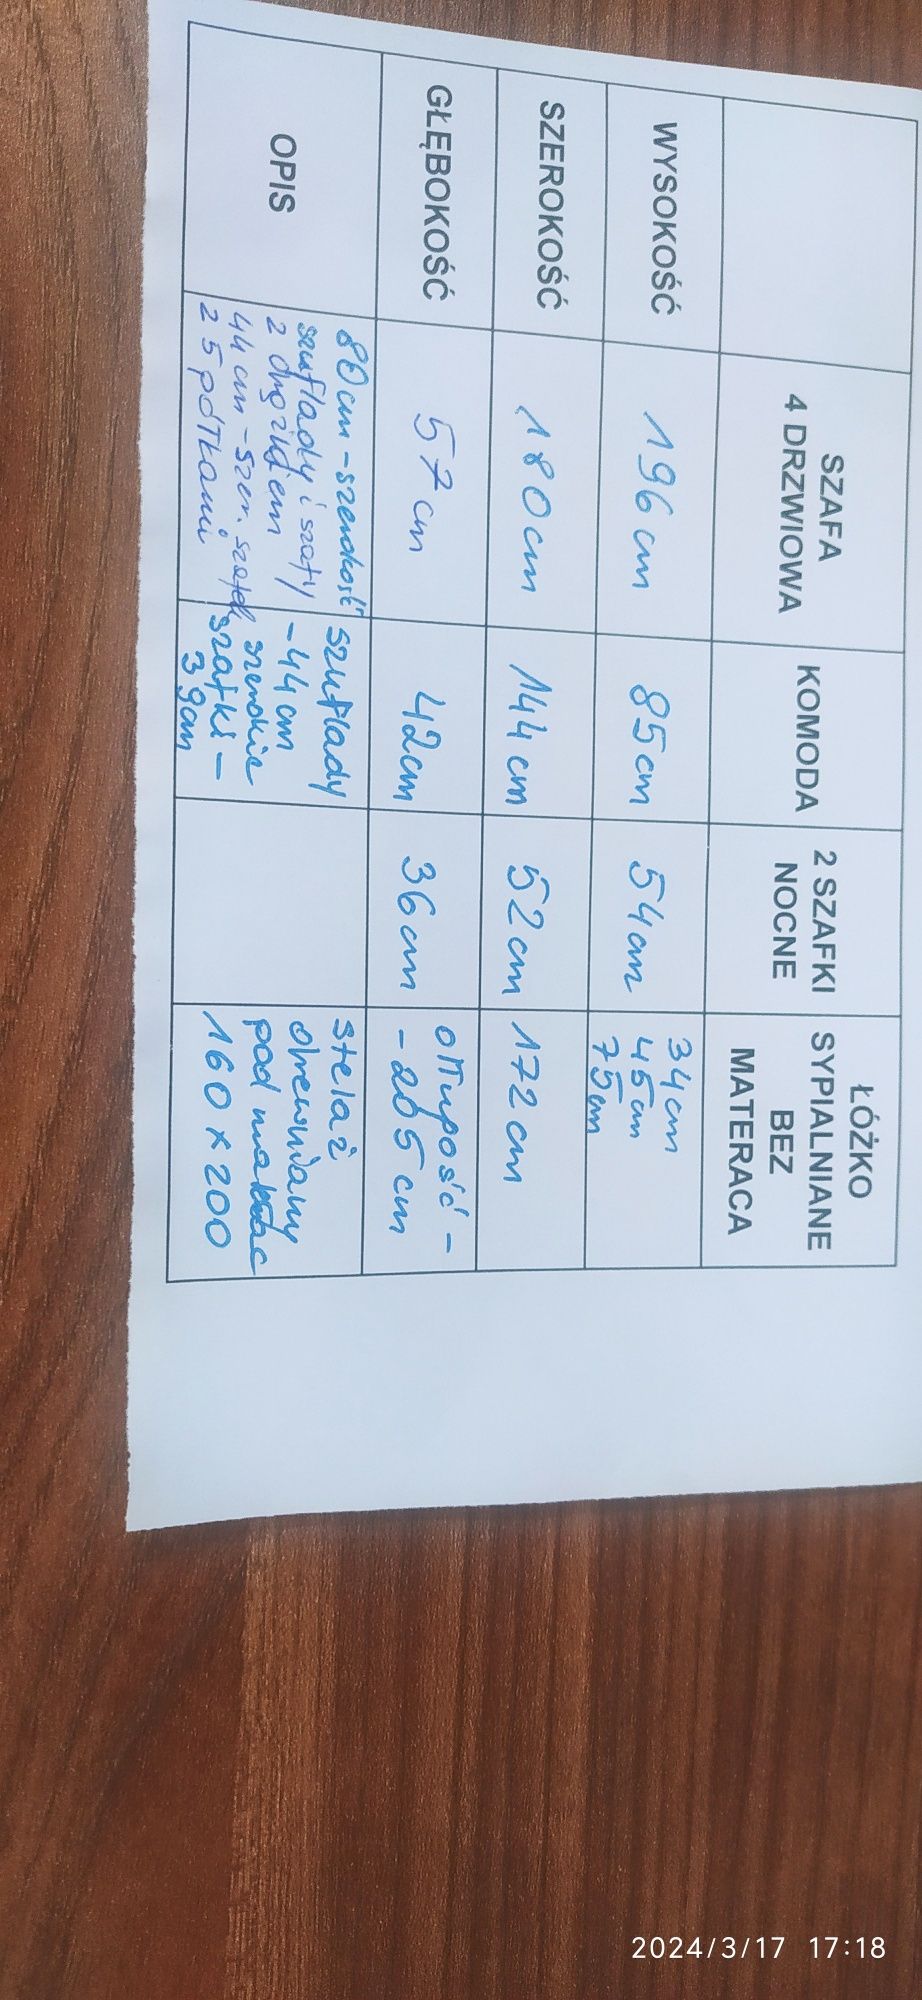 SZAFA
4 DRZWIOWA
KOMODA
2 SZAFKI
NOCNE
ŁÓŻKO
SYPIALNIANE
BEZ
MATERACA
WYSOKOŚĆ
196 cm
85 cm
54 cm
34 cm
45 cm
75 cm
SZEROKOŚĆ
180 cm
144 cm
52 cm
172 cm
GŁĘBOKOŚĆ
57 cm
42 cm
36 cm
długość -
- 205 cm
OPIS
80 cm - szerokość
szuflady i szafy
z drążkiem
44 cm - szer. szafek
z 5 półkami
szuflady
- 44 cm
szerokie
szafki -
39 cm
stelaż
drewniany
pod materac
160 x 200
2024/3/17 17:18